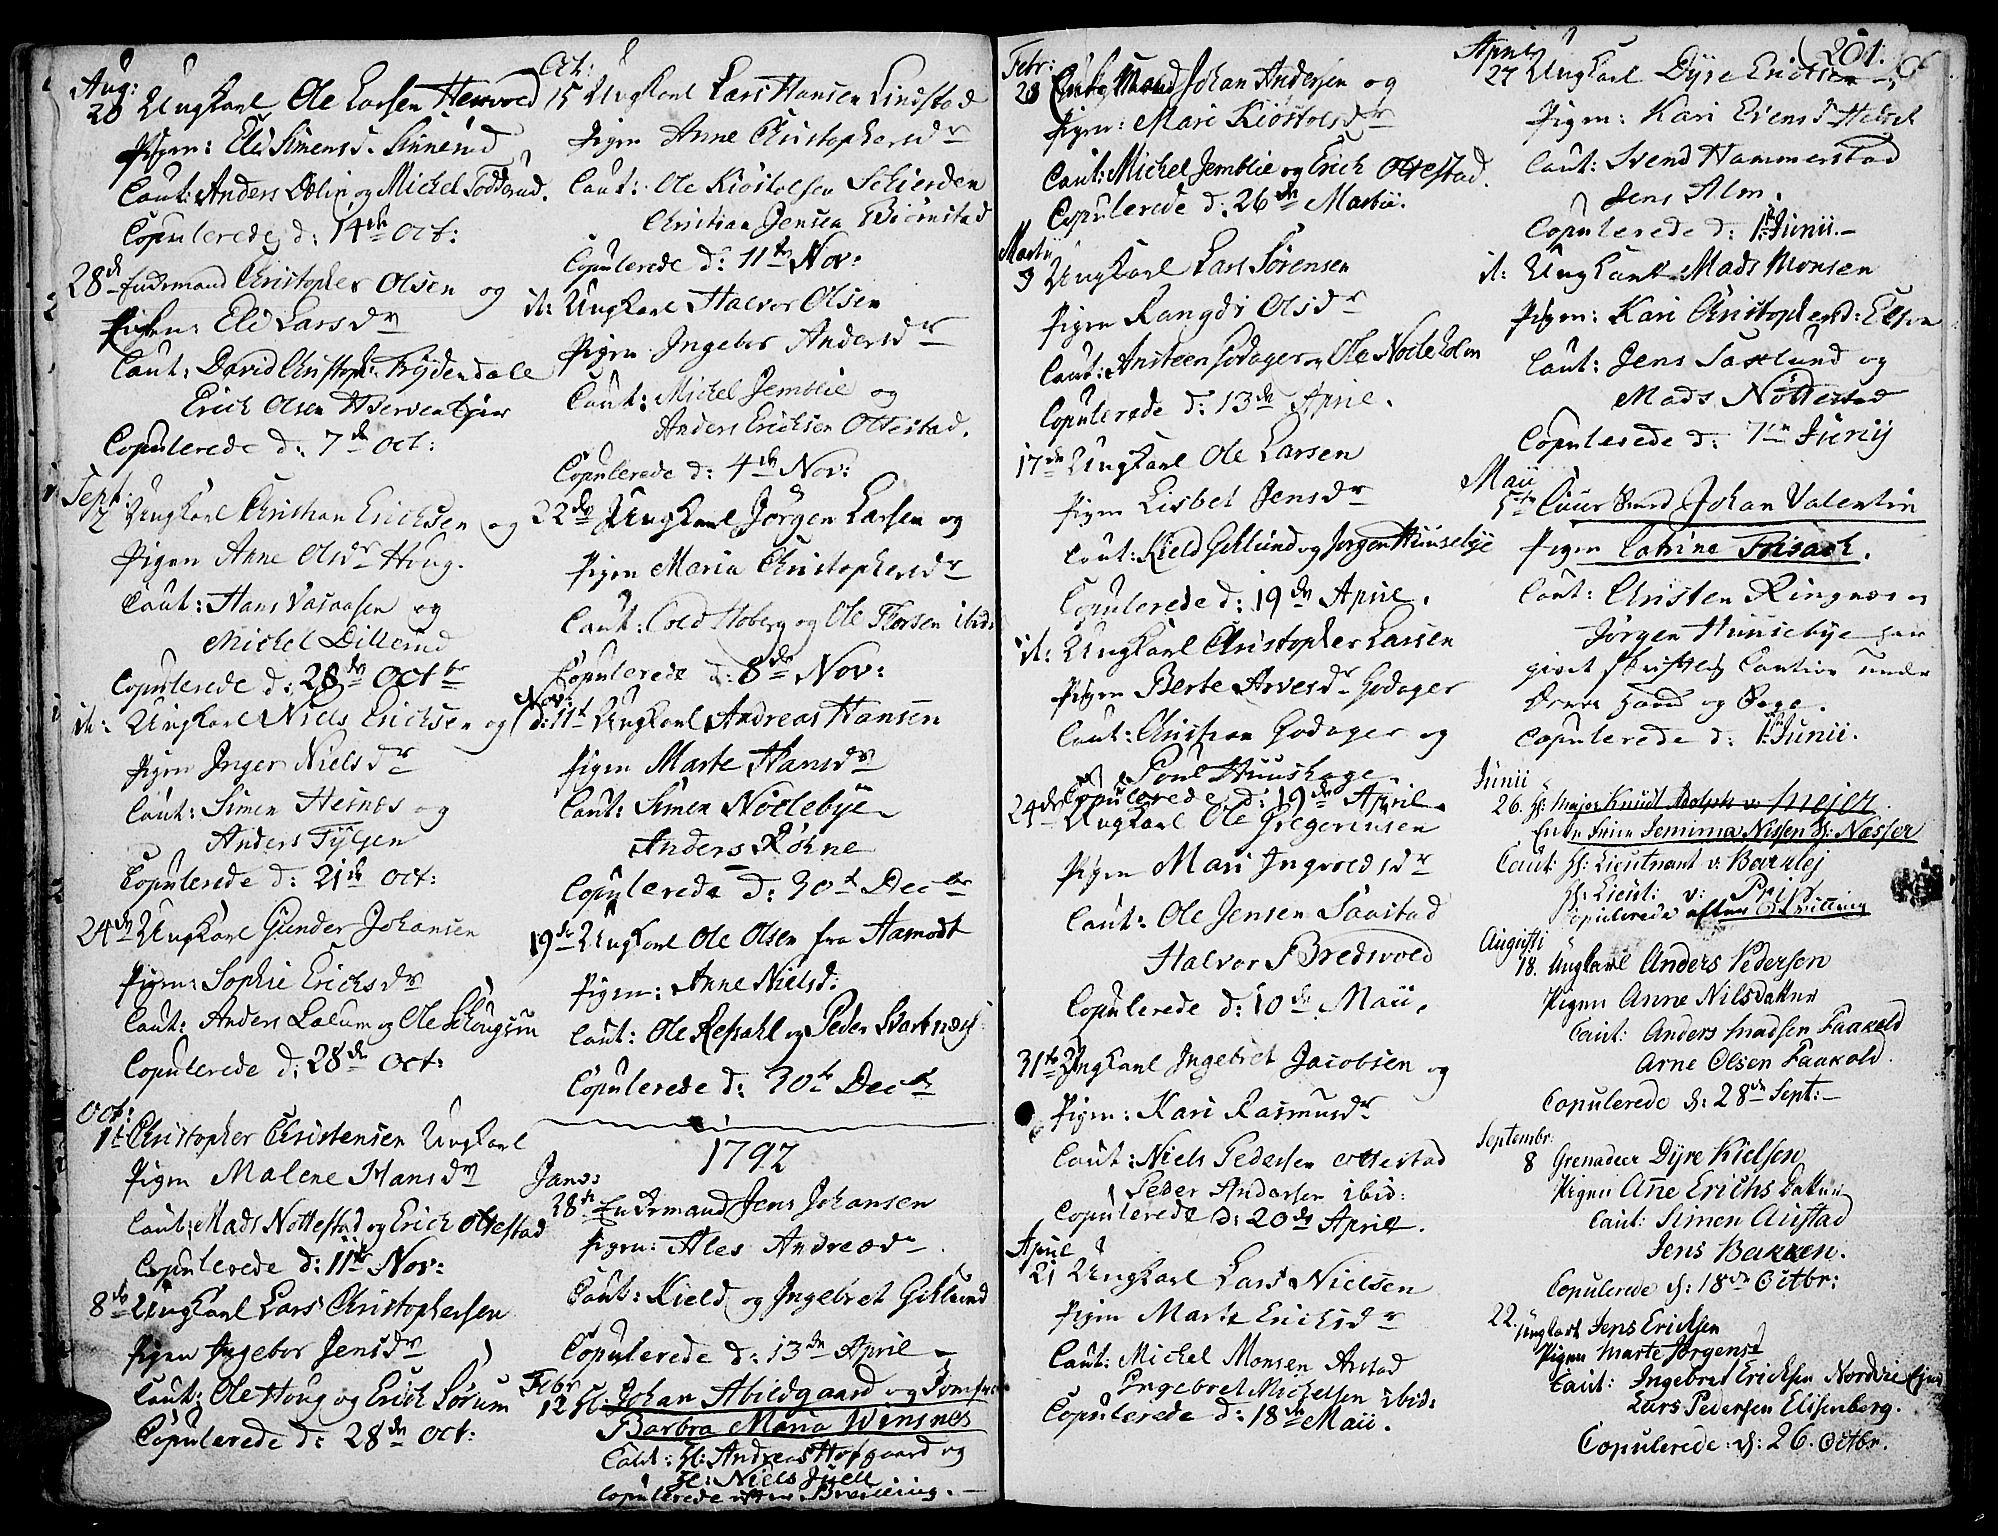 Aug:
28 Ungkarl Ole Larsen Henvold
Pigen: Eli Simensd. Sinnerud
Caut: Anders Dælin og Michel Tødderud.
Copulerede d: 14de Oct:
28de Enckmand Christopher Olsen og
Pigen: Eli Larsdr
Caut: David Christoph: Frydendale
Erich Olsen
Copulerede d: 7de Oct:
Sept:
Ungkarl Christian Erichsen og
Pigen Anne Olsdr Houg.
Caut: Hans Vasaasen og
Michel Dillerud
Copulerede d: 28de Octbr
it: Ungkarl Niels Erichsen og
Pigen Inger Nielsdr
Caut: Simen Hernes og
Anders
Copulerede d: 21de Oct:
24de Ungkarl Gunder Johansen
Pigen: Sophie Erichsdr
Caut: Anders Lalum og Ole
Copulerede d: 28de Oct:
Oct:
1t Christopher Christensen Ungkarl
Pigen Malene Hansdr
Caut: Mads Nøttestad og Erich Ottestad
Copulerede d: 11te Nov:
8de Ungkarl Lars Christophersen
Pigen Ingebor Jensdr
Caut: Ole Houg og Erich Sørum
Copulerede d: 28de Oct:
Oct:
15 Ungkarl Lars Hansen Lindstad
Pigen Anne Christophersdr
Caut: Ole Kiøstelsen
Christian Jensen Biørnstad
Copulerede d: 11te Nov:
it: Ungkarl Halvor Olsen
Pigen Ingebor Andersdr
Caut: Michel Jemblie og
Anders Erichsen Ottestad.
Copulerede d: 4de Nov:
22de Ungkarl Jørgen Larsen og
Pigen Maria Christophersdr
Caut: Hoberg og Ole Florsen ibid:
Copulerede d: 8de Nov:
Nov:
d: 11t Ungkarl Andreas Hansen
Pigen Marte Hansdr
Caut: Simen Nødebye
Anders Røhne
Copulerede d: 30t Decbr
19de Ungkarl Ole Olsen fra Aamodt
Pigen: Anne Nielsd:
Caut: Ole Refsahl og Peder
Copulerede d: 30te Decbr
1792
Janv:
28de Enckmand Jens Johansen
Pigen: Ales Andreædr
Caut: Kield og Ingebret Gicklund
Copulerede d: 13de April
Febr
12 H: Johan Abildgaard og Jomfru
Barbra Maria Winsnes
Caut: H: Andreas Hofgaard og
H: Niels Juell
Copulerede efter Bevilling.
Febr:
28 Enkemand Johan Andersen og
Pigen: Mari Kiøstolsdr
Caut: Michel Jemblie og Erich Ottestad.
Copulerede d: 26de Martii.
Martii
3 Ungkarl Lars Sørensen
Pigen Rangdi Olsdr
Caut: Ansteen Godager og Ole Nocleholm
Copulerede d: 13de April.
17de Ungkarl Ole Larsen
Pigen Lisbet Jensdr
Caut: Kield Gicklund og Jørgen Huusebye
Copulerede d: 19de April.
it: Ungkarl Christopher Larsen
Pigen Berte Arvesdr Godager
Caut: Christian Godager og
Poul Huushage.
Copulerede d: 19de April.
24de Ungkarl Ole Gregeriusen
Pigen Mari Ingvoldsdr
Caut: Ole Jensen Saastad
Halvor Bredvold
Copulerede d: 10de Maii.
31te Ungkarl Ingebret Jacobsen og
Pigen: Kari Rasmusdr
Caut: Niels Pedersen Ottestad
Peder Andersen ibid:
Copulerede d: 20de April.
April
21 Ungkarl Lars Nielsen
Pigen Marte Erichsdr
Caut: Michel Monsen Arstad
Ingebret Michelsen ibid:
Copulerede d: 18de Maii.
201.
April
27 Ungkarl Dyre Erichsen og
Pigen: Kari Evensd
Caut: Svend Hammerstad
Jens Alm.
Copulerede d: 1te Junii.
it: Ungkarl Mads Monsen
Pigen: Kari Christophersd:
Caut: Jens Saxlund og
Mads Nøttestad
Copulerede d: 7de Junij
Maii
5te Johan Valentin
Pigen Catrine Frisach.
Caut: Christen Ringnæs og
Jørgen Huusebye har
givet skriftlig Caution under
Deres Haand og
Copulerede d: 1te Junii.
Junii
26. H: Major Knudt Adolph v: Mejer
Jemima Nissen
Caut: H: Lieutnant v: Backlej
H: Lieut: v:
Copulerede efter Bevilling
Augusti
18. Ungkarl Anders Pedersen
Pigen Anne Nilsdatter
Caut: Anders Madsen Faakold
Arne Olsen Faakold.
Copulerede d: 28de Sept:
Septembr:
8 Grenadeer Dyre Kielsen
Pigen Anne Erichs Datter
Caut: Simen Austad
Jens Bakken.
Copulerede d: 18de Octbr:
22. Ungkarl Jens Ericksen
Pigen Marte Jørgensd
Caut: Ingebret Ericksen
Lars Pedersen Elisenberg.
Copulerede: d: 26. Octbr.